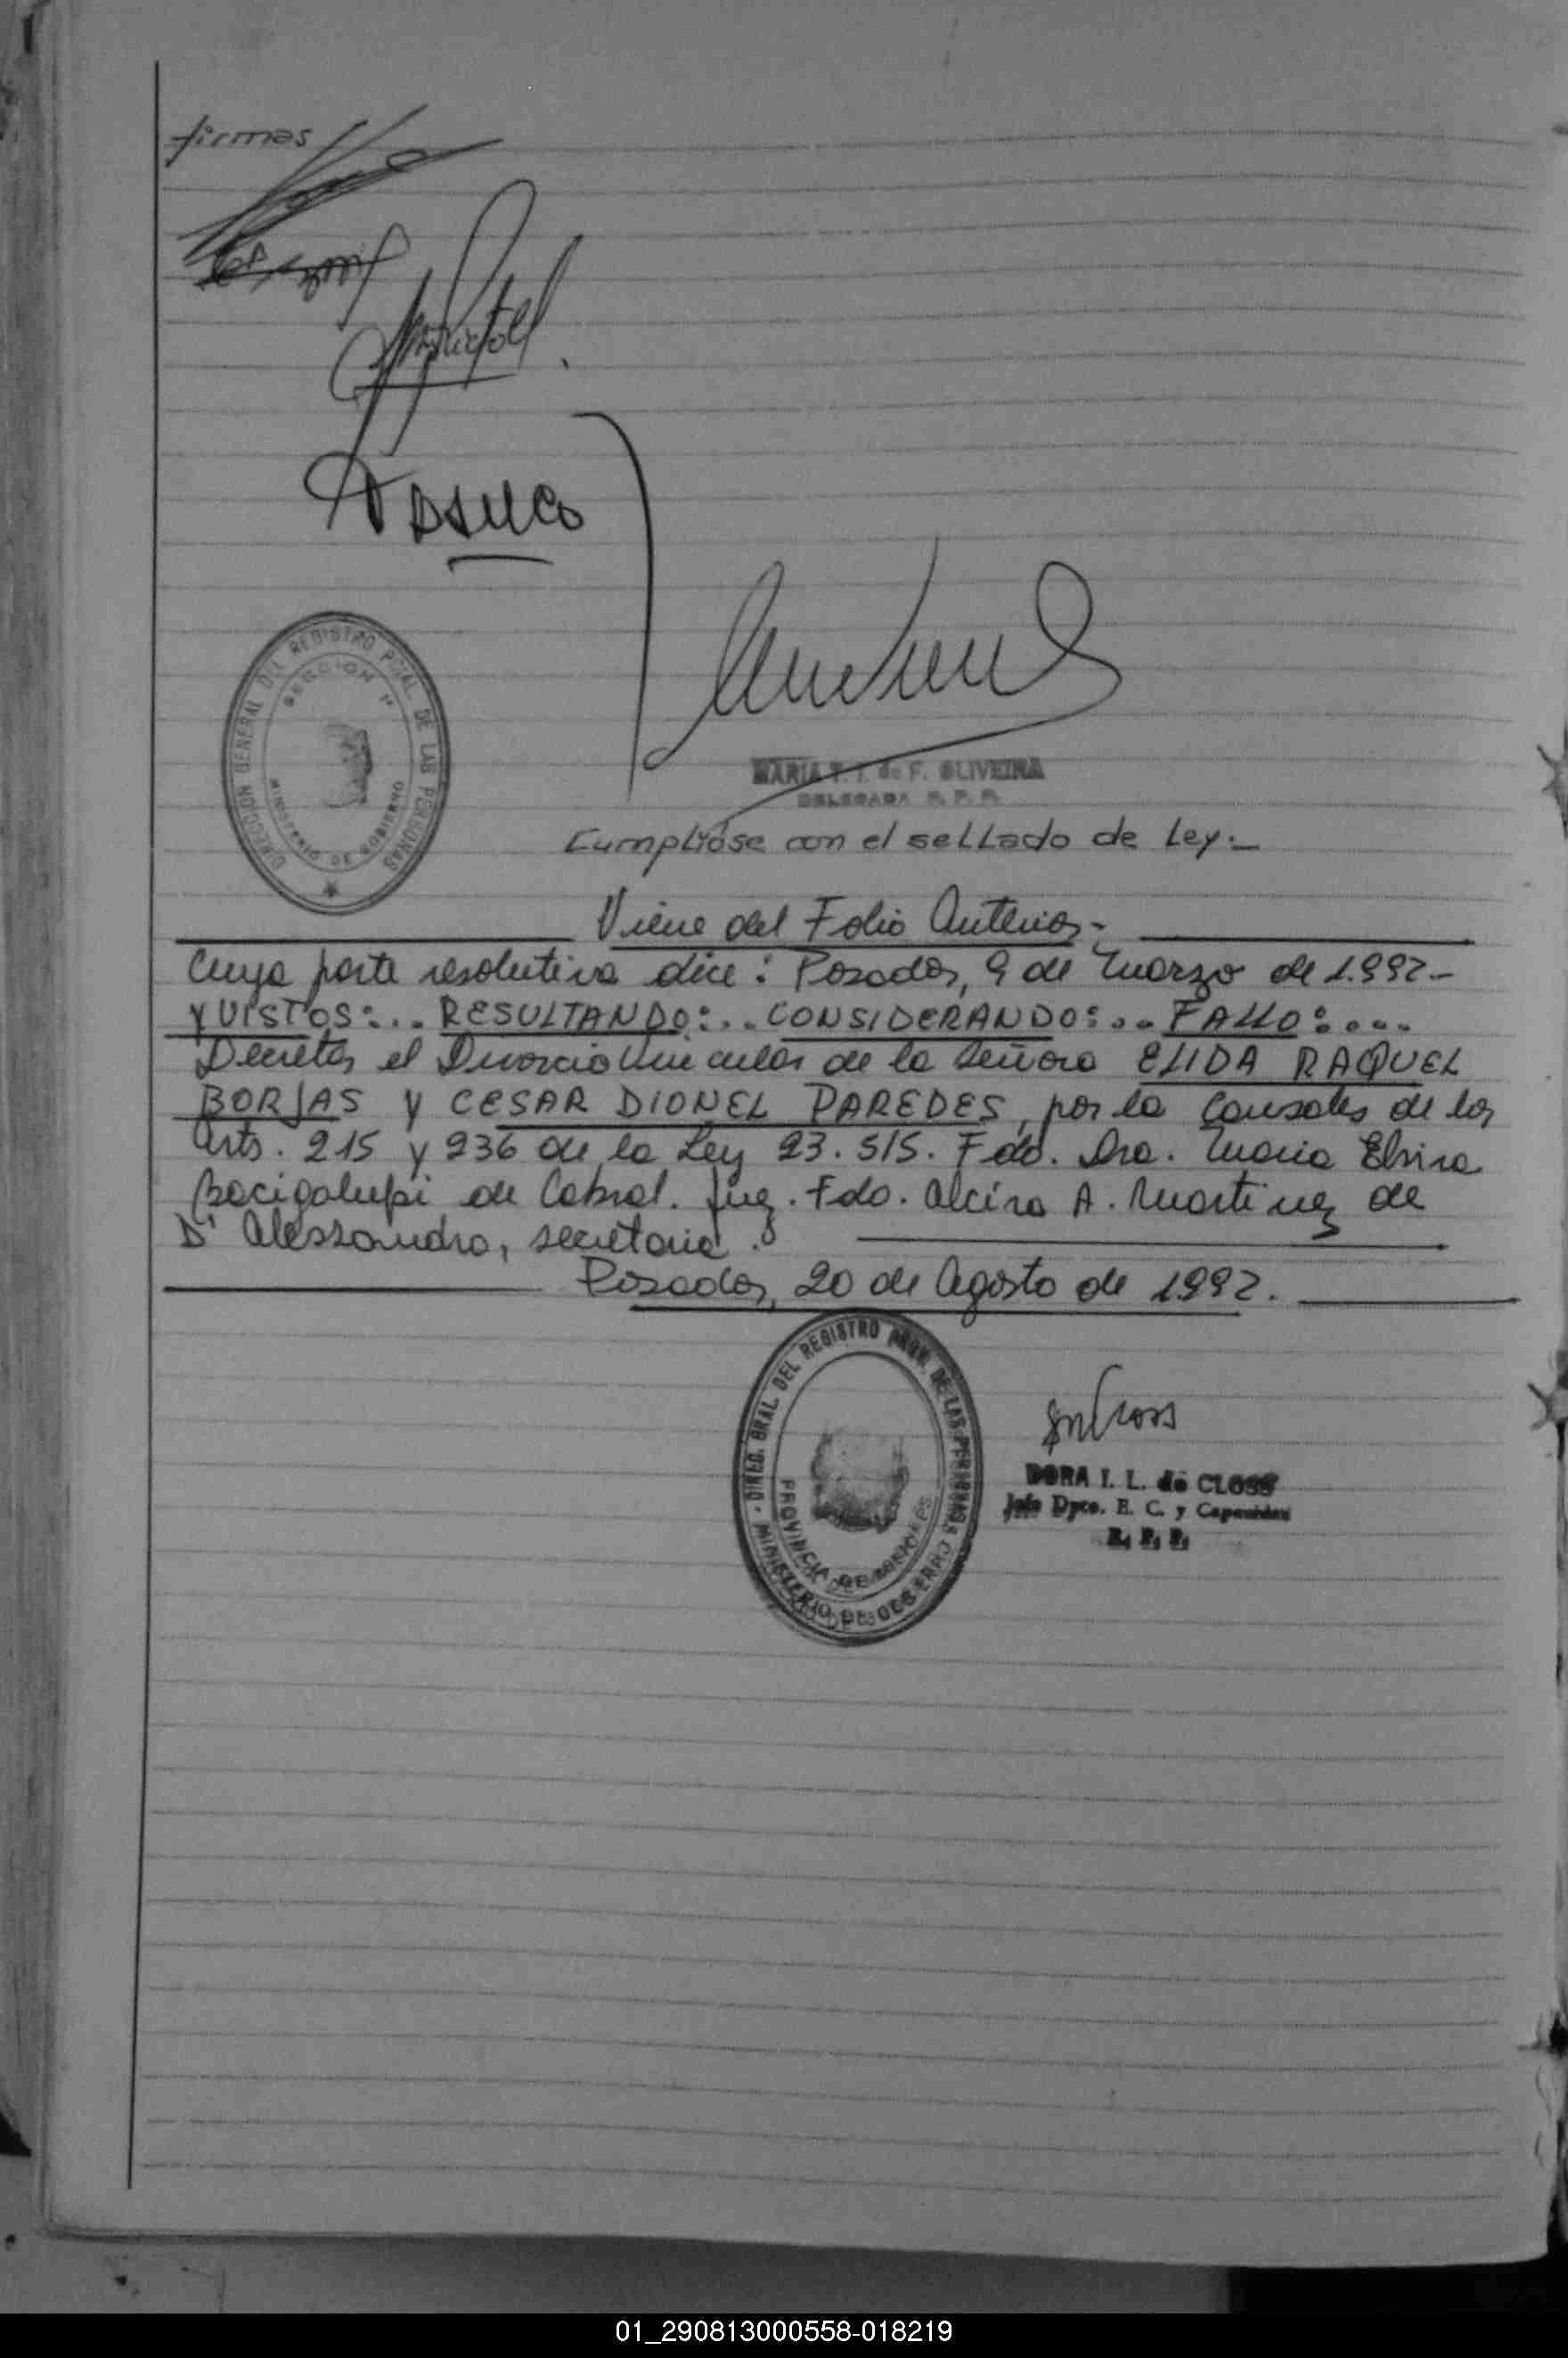 firmas
DIRECCION GENERAL DEL REGISTRO PCIAL DE LAS PERSONAS
SECCION 1ª
MINISTERIO DE GOBIERNO
MARIA T. I. de F. OLIVEIRA
DELEGADA R. P. P.
Cumplióse con el sellado de Ley.-
Viene del Folio Anterior-
Cuya parte resolutiva dice: Posadas, 9 de Marzo de 1.992.-
Y VISTOS:... RESULTANDO:... CONSIDERANDO:... FALLO:....
Decretar el Divorcio Vincular de la Señora ELIDA RAQUEL
BORJAS Y CESAR DIONEL PAREDES, por la causales de los
Arts. 215 y 236 de la Ley 23.515. Fdo. Dra. Maria Elvira
Bacigalupi de Cabral. Juez. Fdo. Alcira A. Martinez de
D'Alessandro, secretaria.
Posadas, 20 de Agosto de 1992.
DIREC. GRAL DEL REGISTRO PROV. DE LAS PERSONAS
PROVINCIA DE MISIONES
MINISTERIO DE GOBIERNO
DORA I. L. de CLOSS
Jefe Dpto. E. C. y
R. P. P.
01_290813000558-018219